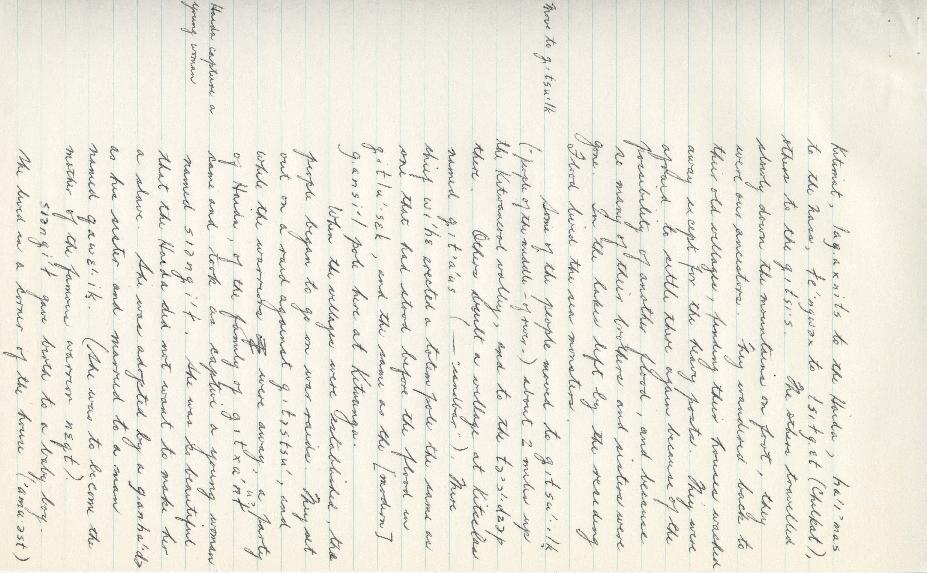 Kitimat, lagiaxnits to the Haida, ha'i'mas
to the Nass, to Tsitget (Chilkat),
others to the gitsis. The others travelled
slowly down the mountains on foot, they
were our ancestors. They wandered back to
their old villages, finding their homes washed
away except for the heavy posts. They were
afraid to settle there again because of the
possibility of another flood, and because
so many of their brothers and sisters were
gone. In the lakes left by the receding
flood lived the sea monsters.
Move to gitsu'lk
Some of the people moved to gitsu'lk
(people of the middle - of river) about 2 miles up
the Kitwancool valley, and to the
there. Others built a village at Kitselas
named git'in'us ( — sandbar). There
chief wi'he erected a totem pole the same as
one that had stood before the flood in
and the same as the [modern]
pole here at Kitwanga.
When the villages were established, the
people began to go on war raids. They set
out on a raid against and
while the warriors were away, a party
of Haida, of the family of
Haida capture a
young woman
came and took as captive a young woman
named She was so beautiful
that the Haida did not want to make her
a slave. She was adopted by a ganhada
as his sister and married to a man
named (She was to become the
mother of the famous warrior neqt)
gave birth to a baby boy.
She lived in a corner of the house